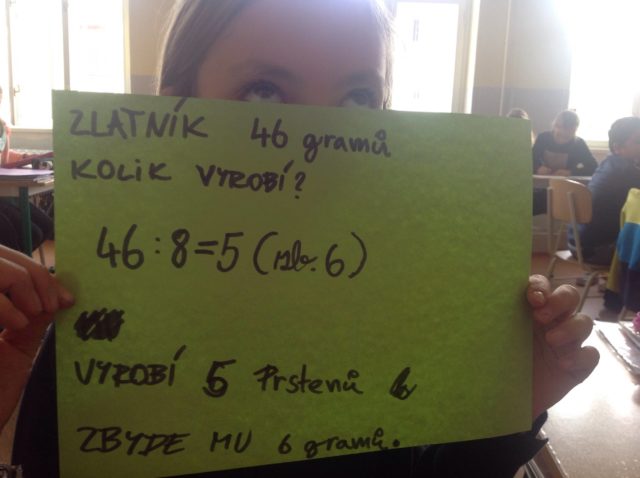 ZLATNÍK 46 gramů
KOLIK VYROBÍ?
46:8=5 (zb. 6)
VYROBÍ 5 Prstenů
ZBYDE MU 6 gramů.